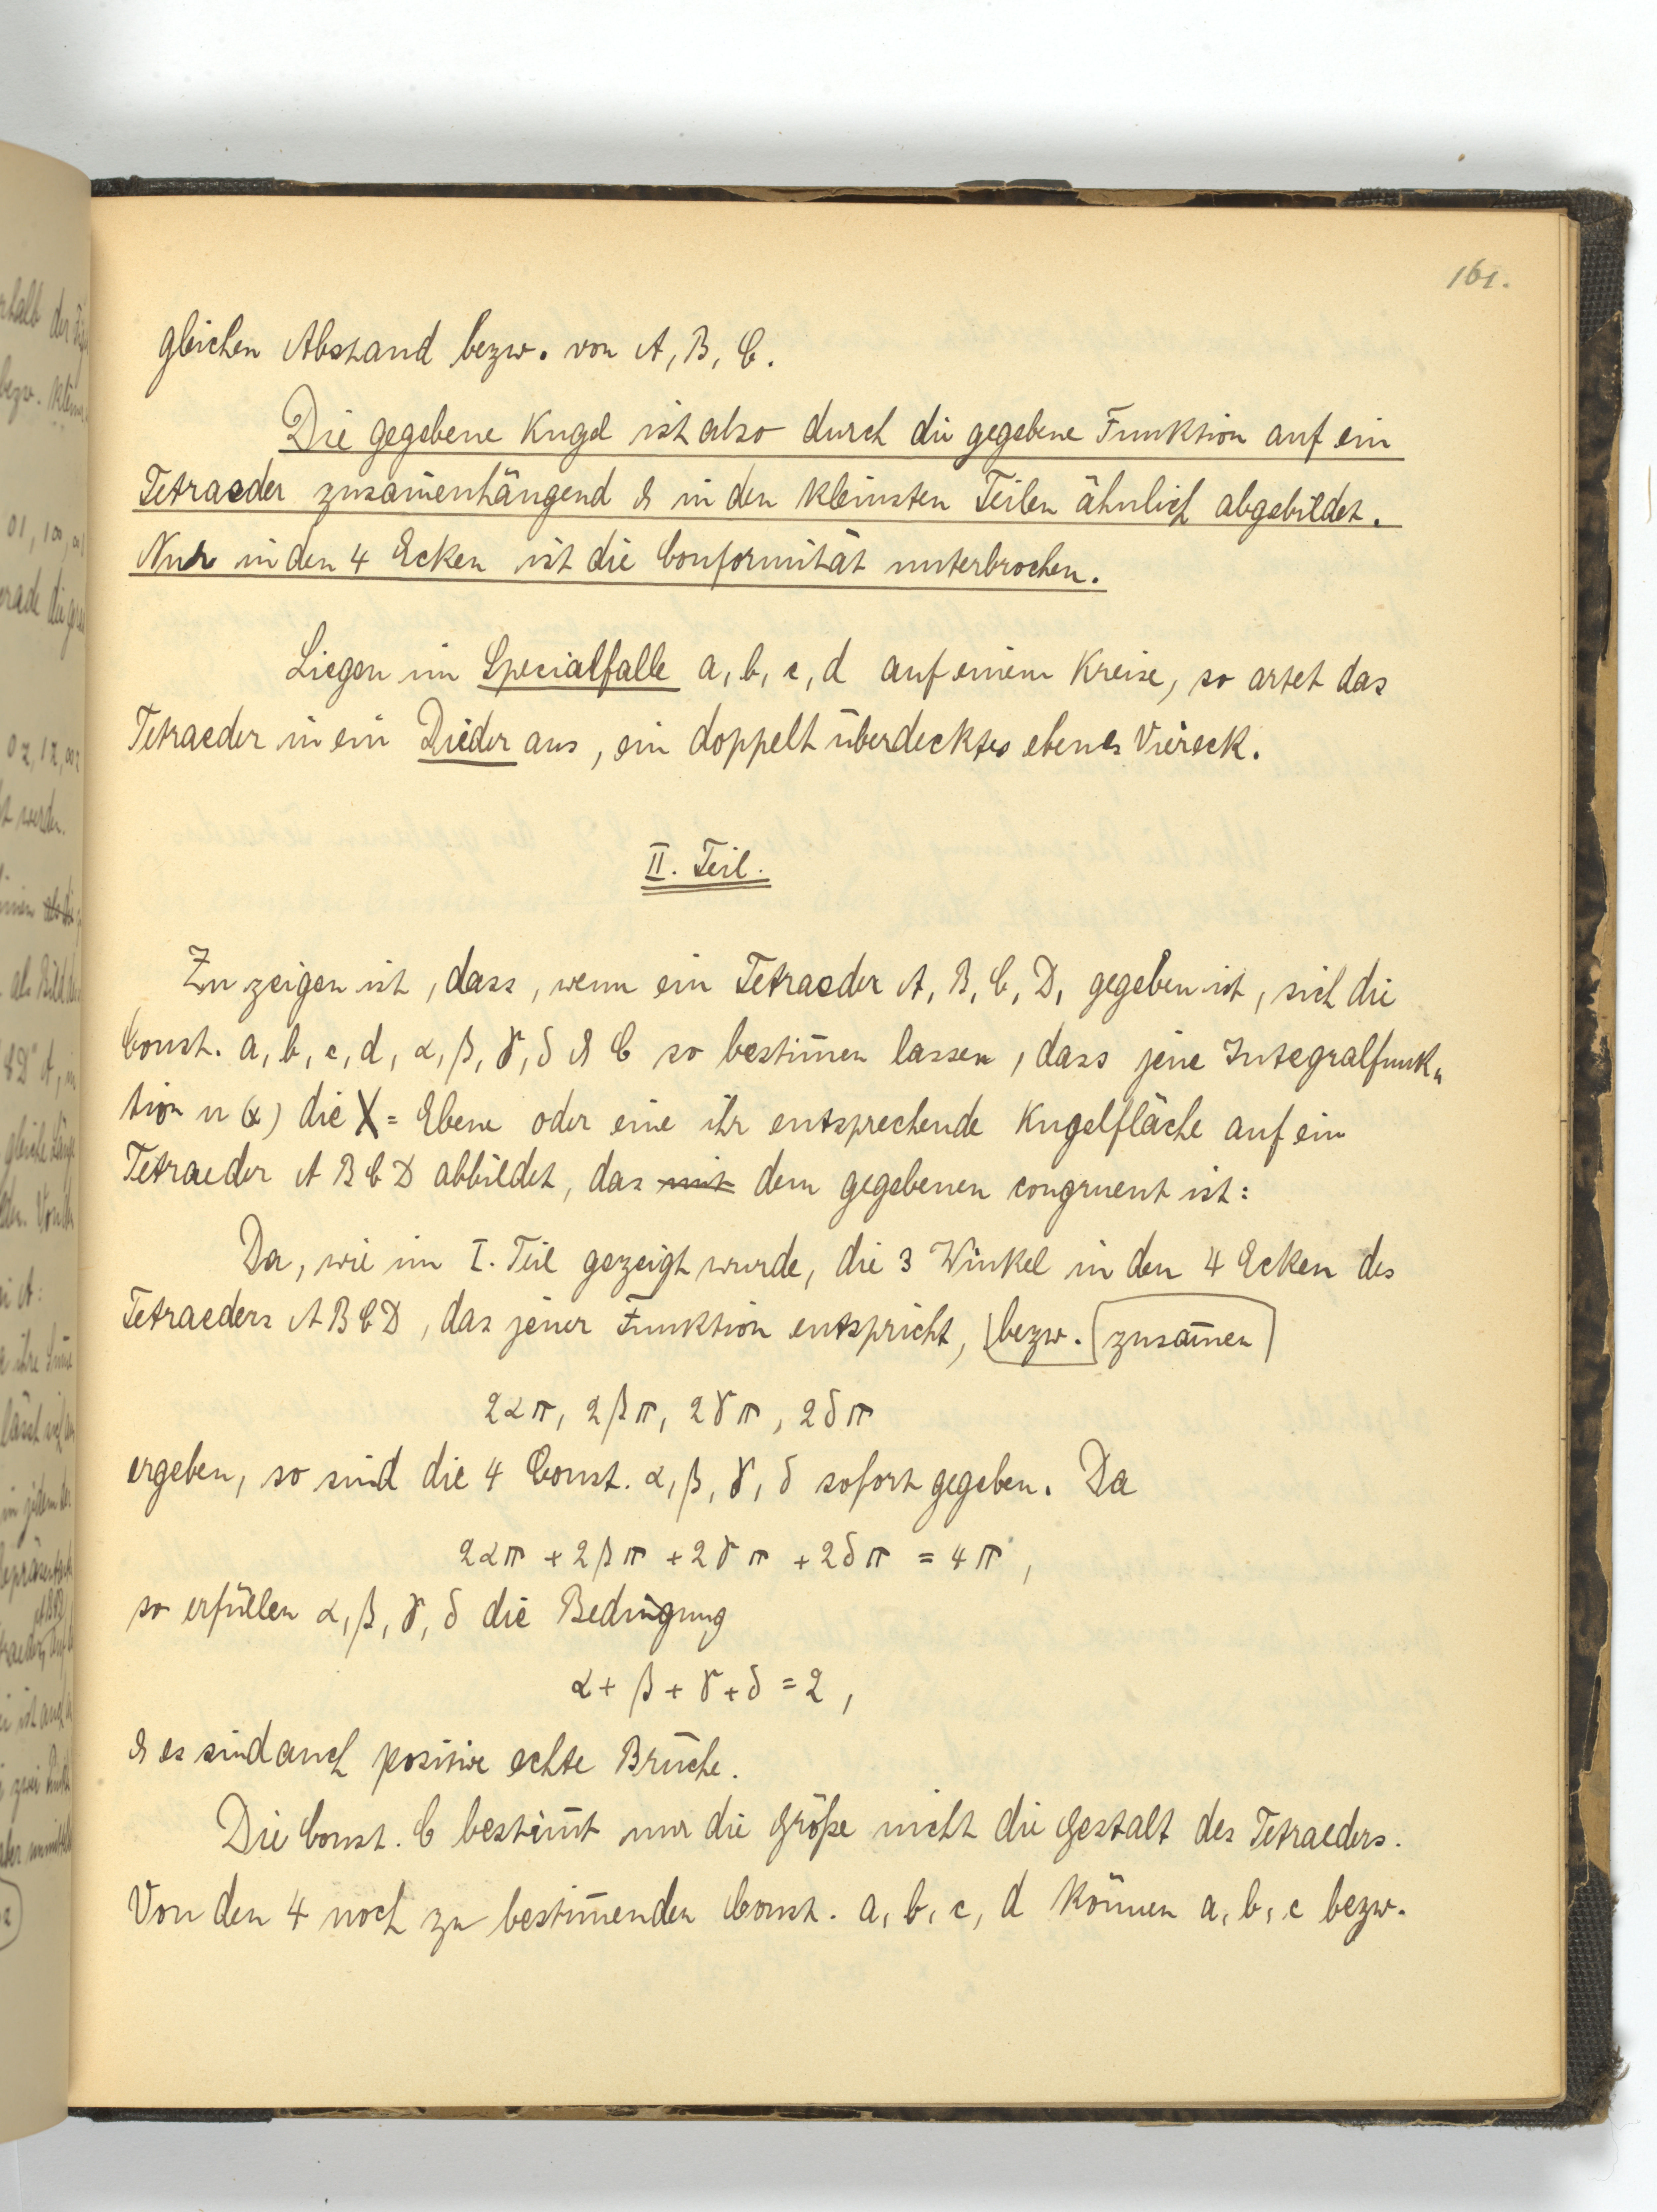 161.
gleichen Abstand bezw. von A, B, C.
Die gegebene Kugel ist also durch die gegebene Funktion auf ein
Tetraeder zusam̄enhängend & in den kleinsten Teilen ähnlich abgebildet.
Nur in den 4 Ecken ist die Conformität unterbrochen.
Liegen im Specialfalle a, b, c, d auf einem Kreise, so artet das
Tetraeder in ein Dieder aus, ein doppelt überdecktes ebenes Viereck.
II. Teil.
Zu zeigen ist, dass, wenn ein Tetraeder A, B, C, D, gegeben ist, sich die
Const. a, b, c, d, α, β, γ, δ & C so bestim̄en lassen, dass jene Integralfunk„
tion u (x) die X = Ebene oder eine ihr entsprechende Kugelfläche auf ein
Tetraeder A B C D abbildet, das mit dem gegebenen congruent ist:
Da, wie im I. Teil gezeigt wurde, die 3 Winkel in den 4 Ecken des
Tetraeders A B C D, das jener Funktion entspricht, bezw. zusam̄en
2απ, 2βπ, 2γπ, 2δπ
ergeben, so sind die 4 Const. α, β, γ, δ sofort gegeben. Da
2απ + 2βπ + 2γπ + 2δπ = 4π,
so erfüllen α, β, γ, δ die Bedingung
α + β + γ + δ = 2,
& es sind auch positive echte Brüche.
Die Const. C bestim̄t nur die Größe nicht die Gestalt des Tetraeders.
Von den 4 noch zu bestim̄enden Const. a, b, c, d können a, b, c bezw.